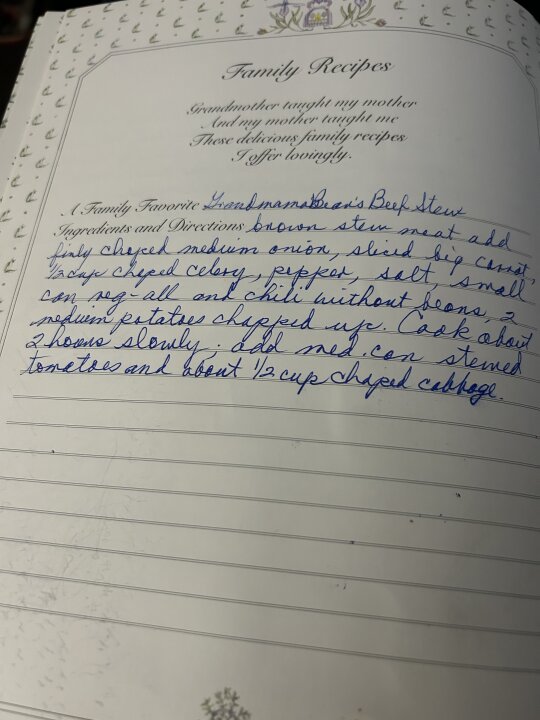 Family Recipes
Grandmother taught my mother
And my mother taught me
These delicious family recipes
I offer lovingly.
A Family Favorite Grandmama Bean's Beef Stew
Ingredients and Directions brown stew meat add
finly choped medium onion, sliced big carrot,
1/2 cup choped celery, pepper, salt, small
can veg-all and chili without beans, 2
medium potatoes chopped up. Cook about
2 hours slowly; add med. can stewed
tomatoes and about 1/2 cup choped cabbage.